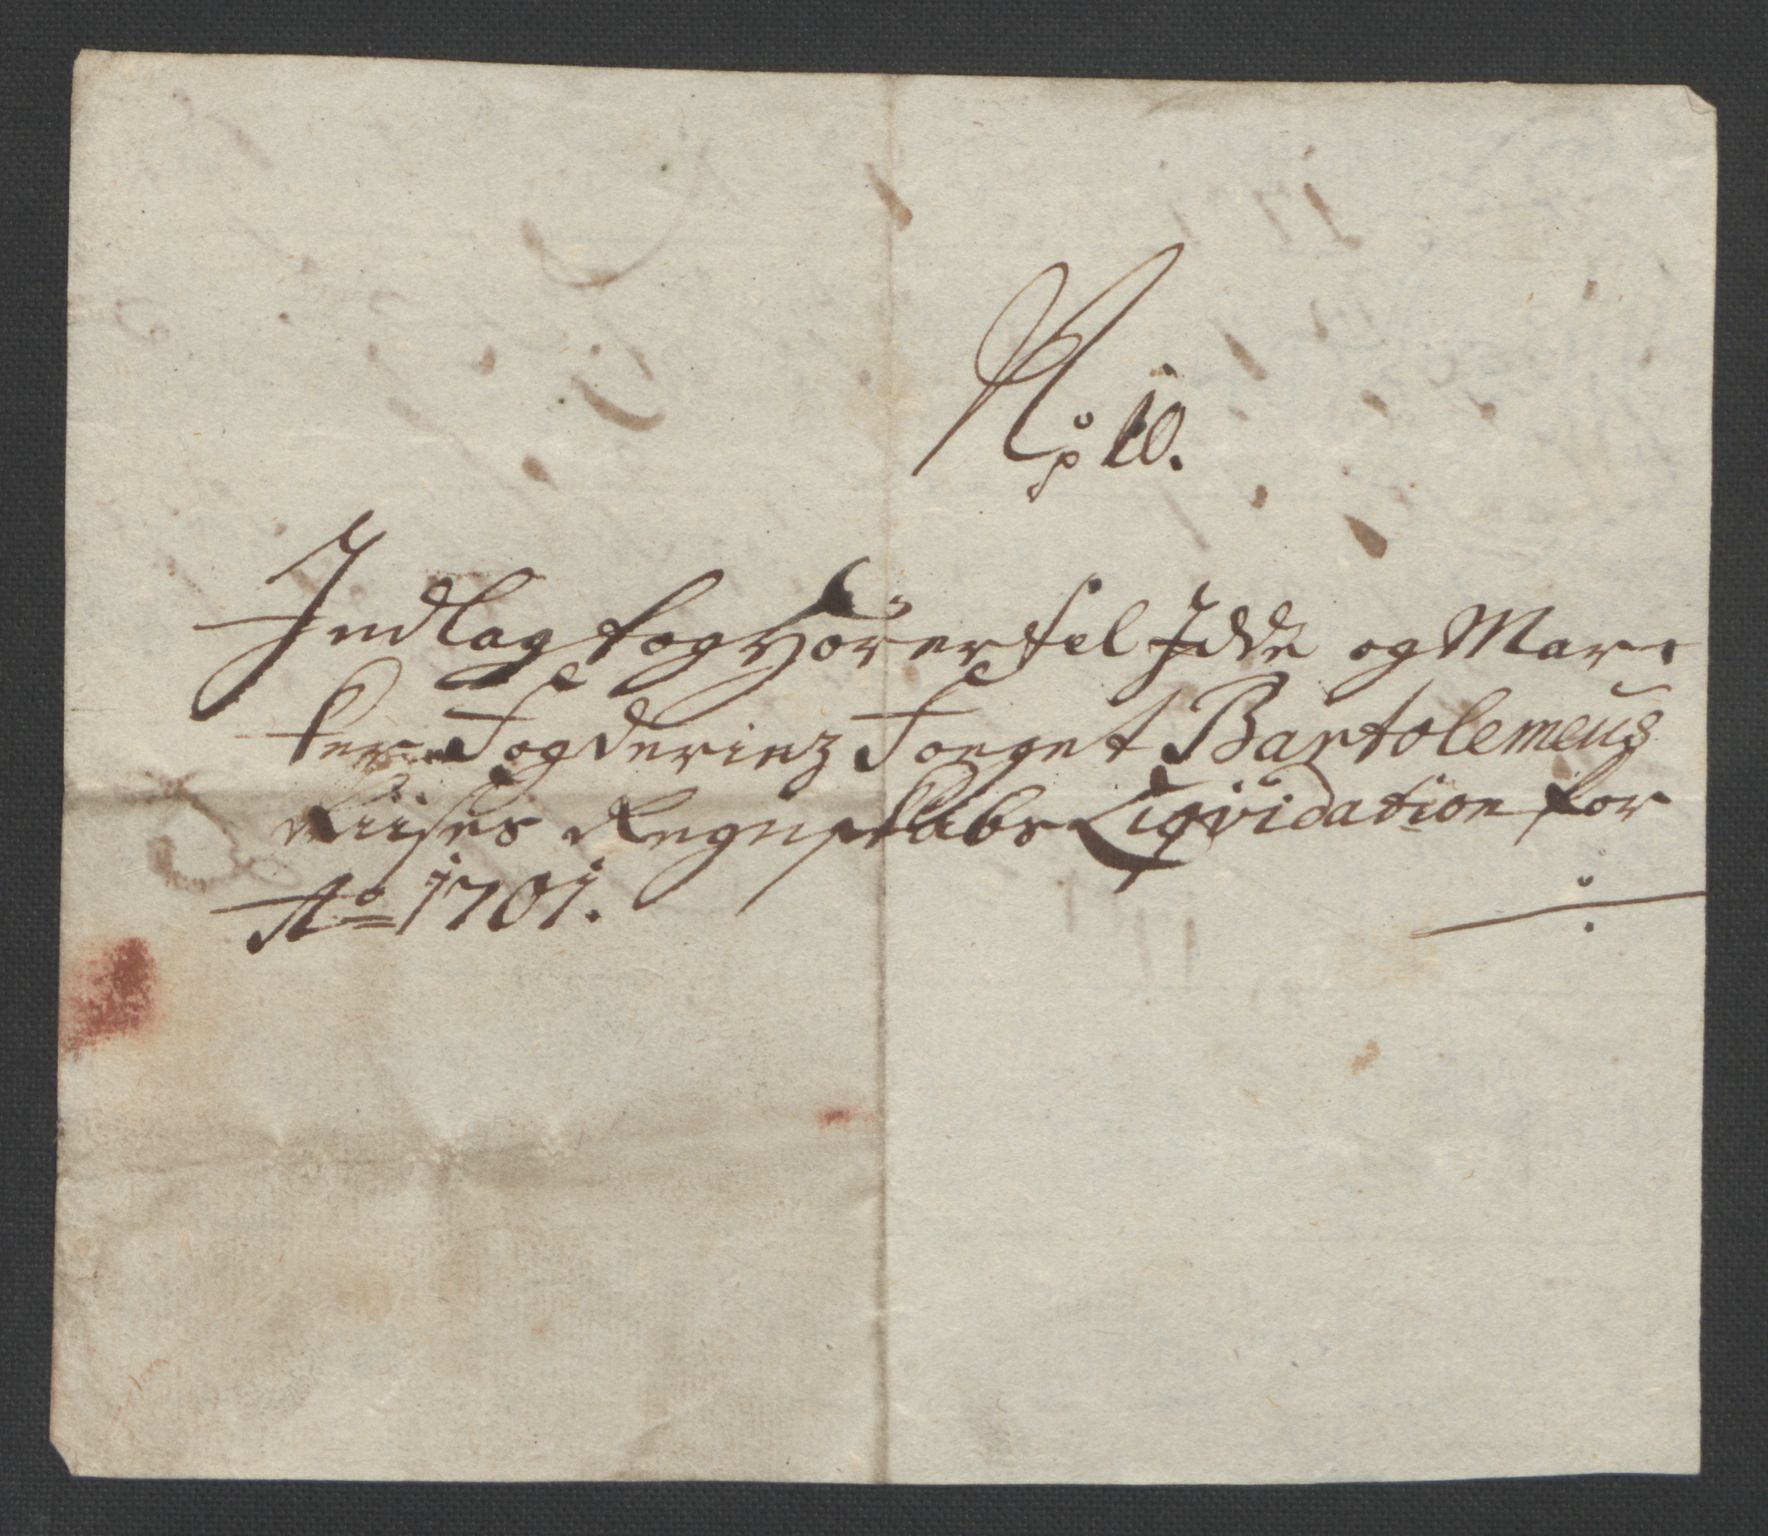 No 10.
Indlagt og Hörer til Idde og Mar-
ker Fogderiez Foeget Bartolemeus
Riises Regnskabs Liqvidation for
Ao 1701.